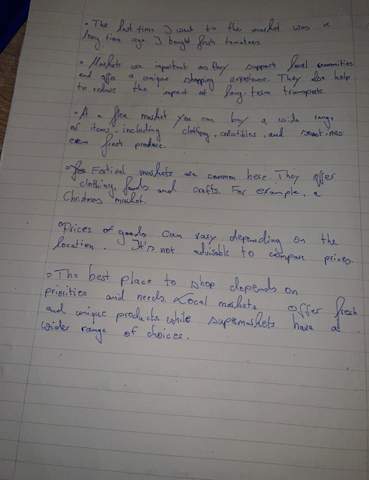 • The last time I went to the market was a
long time ago I bought fresh tomatoes
• Markets are important as they support local communities
and offer a unique shopping experience. They also help
to reduce the impact of long-term transport.
• At a flea market you can buy a wide range
of items, including clothing, collectibles, and sometimes
even fresh produce.
• Festival markets are common here. They offer
clothing, foods and crafts. For example, a
Christmas market.
• Prices of goods can vary depending on the
location. It's not advisable to compare prices.
• The best place to shop depends on
priorities and needs. Local markets offer fresh
and unique products while supermarkets have a
wider range of choices.